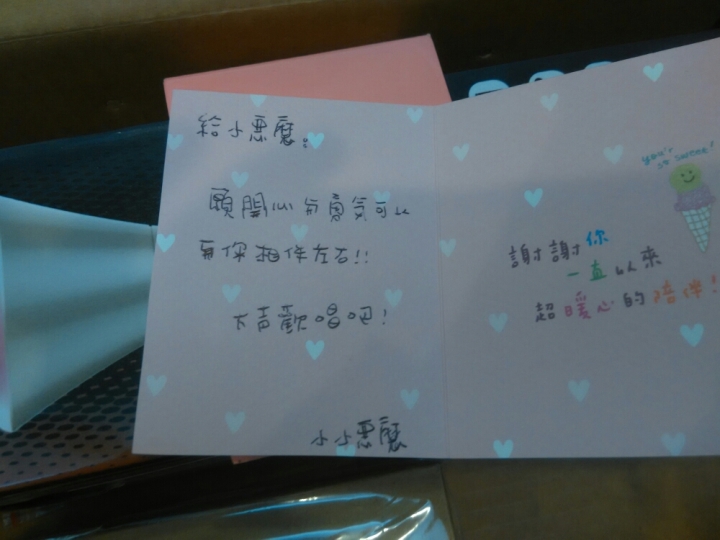 給小悪魔。
願開心与勇気可以
與你相伴左右!!
大声歡唱吧!
小小悪魔
you're
so sweet!
謝謝你
一直以來
超暖心的陪伴!